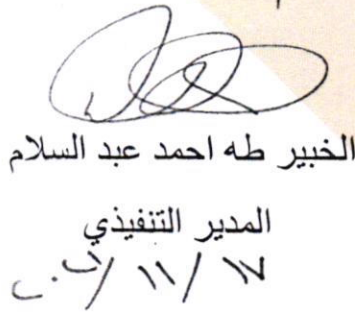 الخبير طه احمد عبد السلام
المدير التنفيذي
١٧ / ١١ /